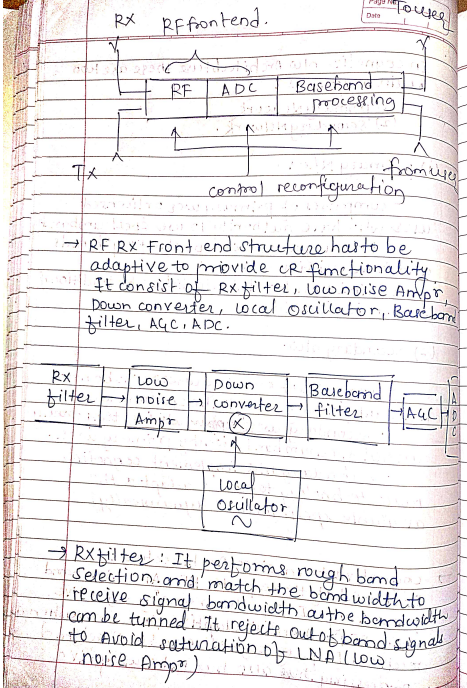 Page No
Date
To user
Rx
RF frontend.
RF
ADC
Baseband
processing
Tx
from user
control reconfiguration
→ RF Rx Front end structure has to be
adaptive to provide CR functionality
It consist of Rx filter, low noise Ampr,
Down converter, local Oscillator, Baseband
filter, AGC, ADC.
Rx
filter
Low
noise
Ampr
Down
converter
X
Baseband
filter
AGC
ADC
Local
Oscillator
~
→ Rx filter : It performs rough band
selection and match the bandwidth to
receive signal bandwidth as the bandwidth
can be tunned. It rejects out of band signals
to Avoid saturation of LNA (Low
noise Ampr)